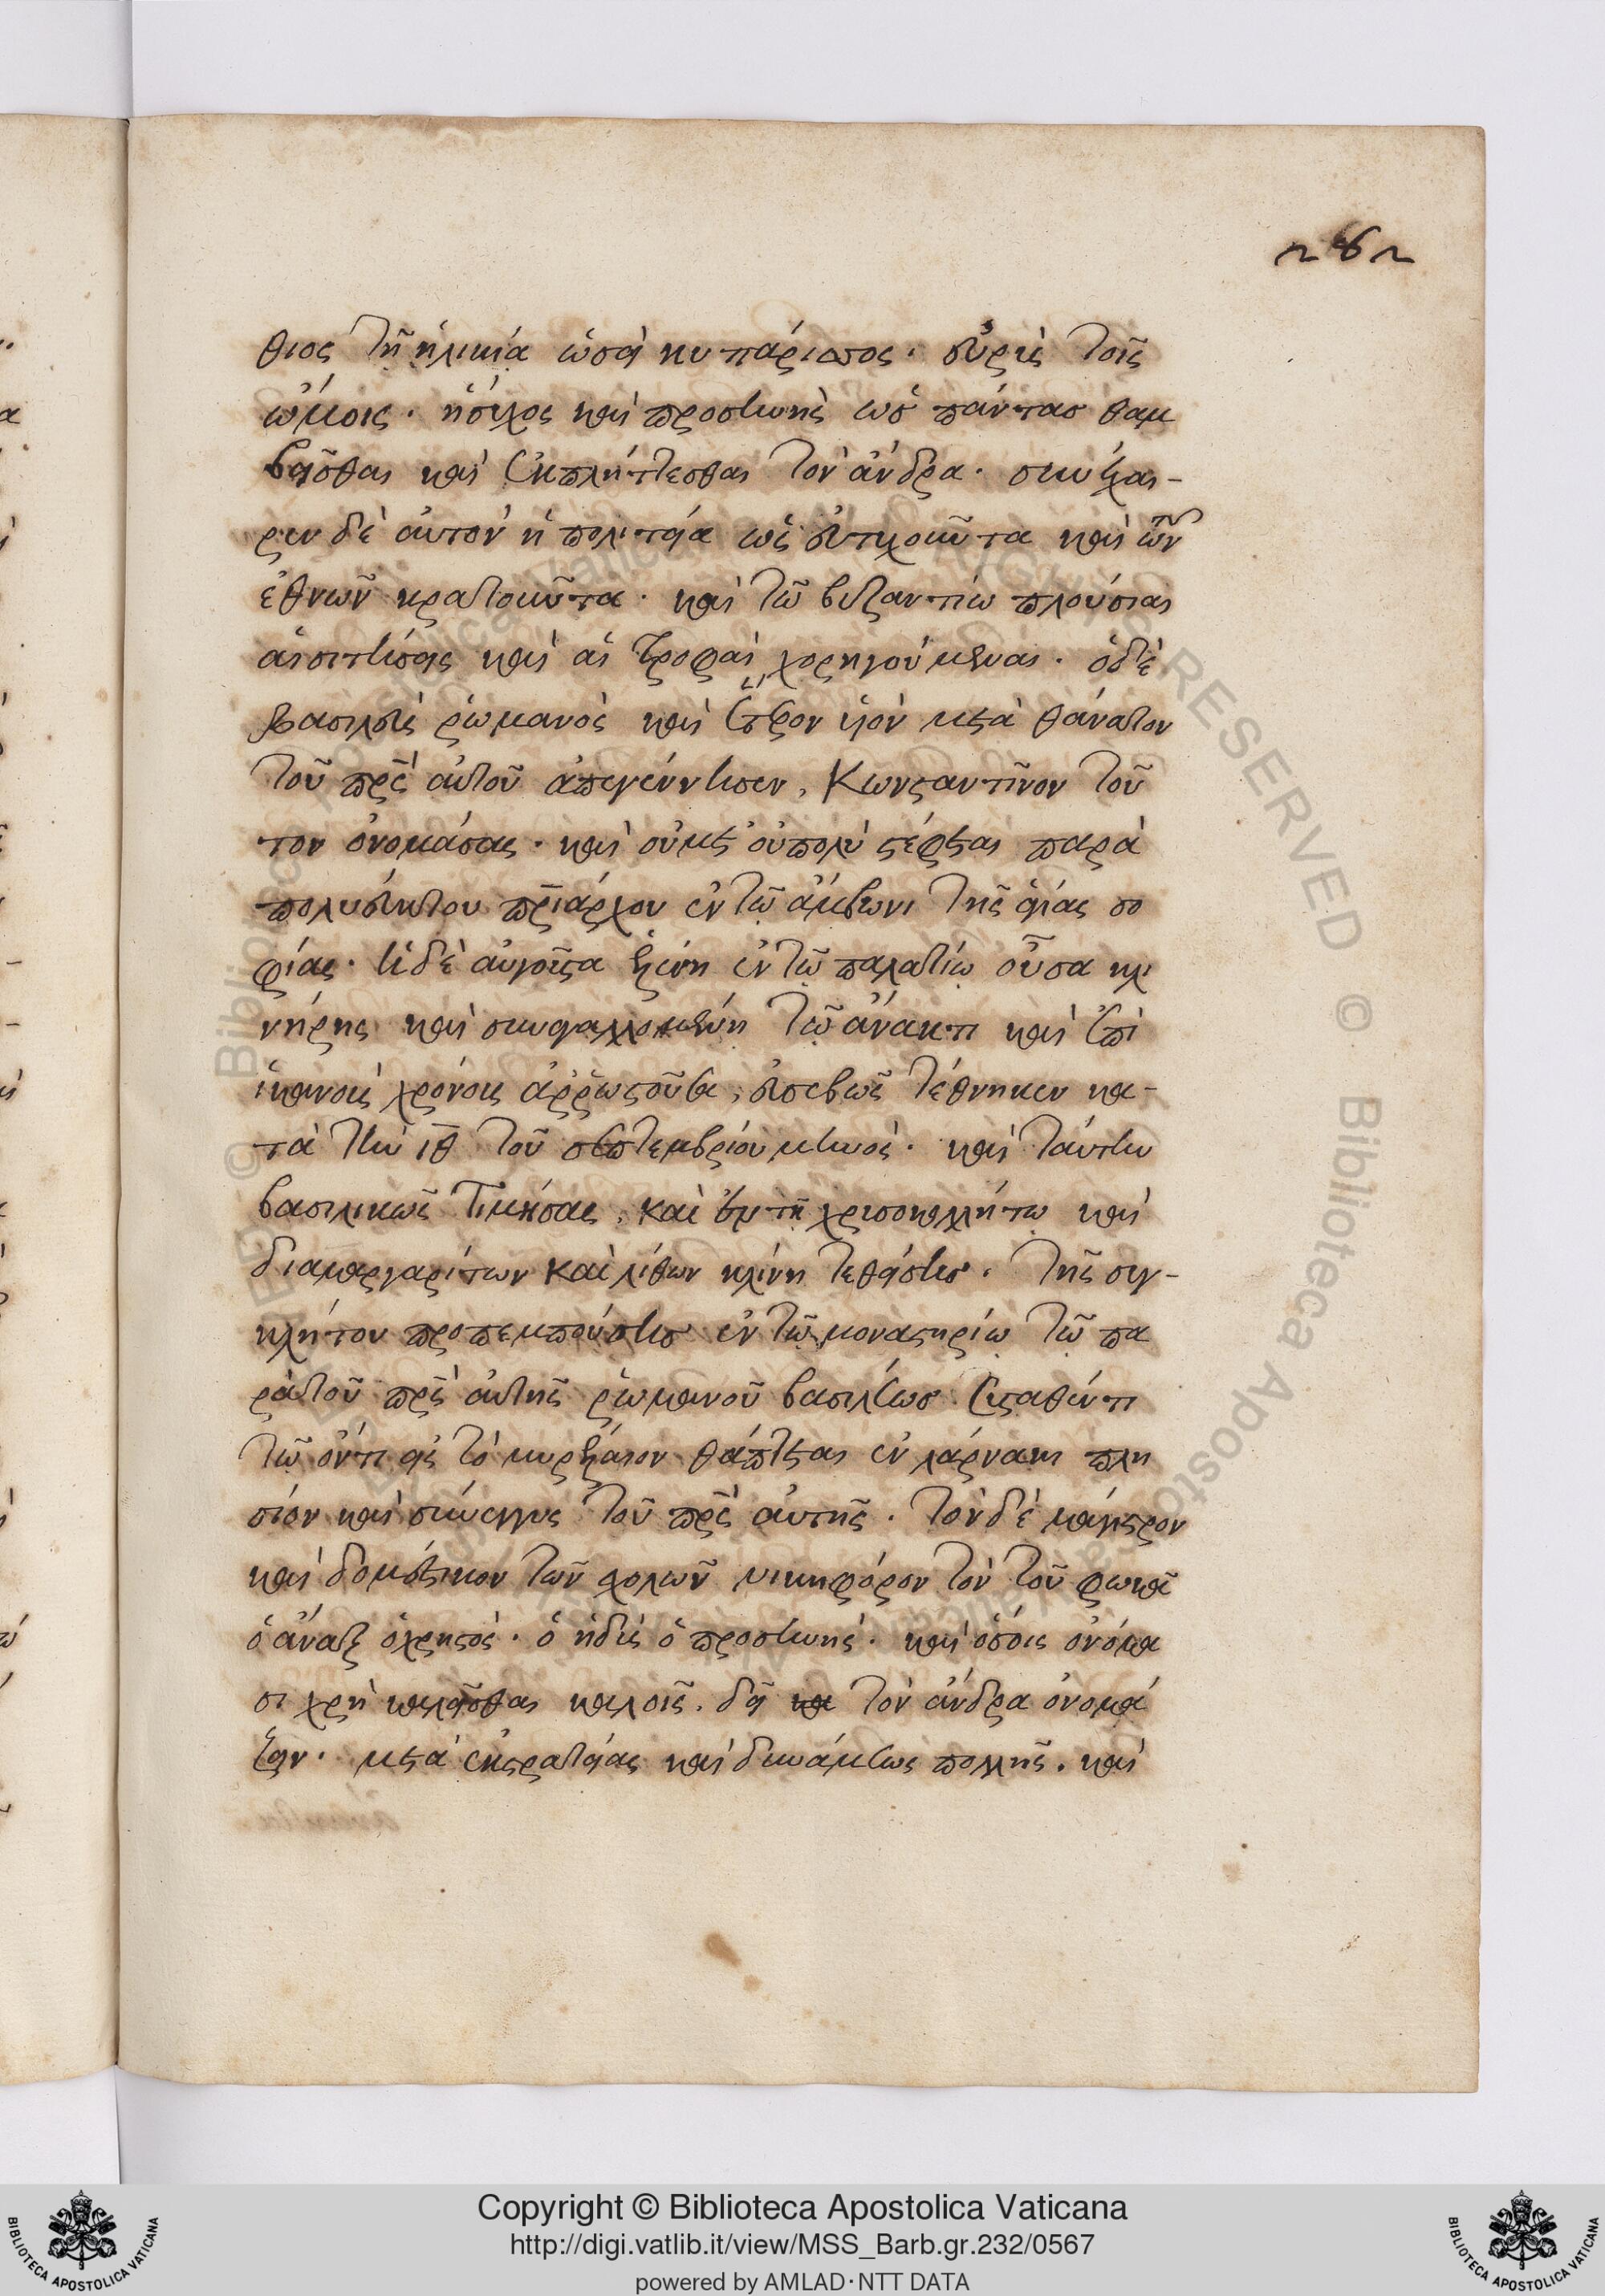 θιος τῆ ἡλικία ὡσεὶ κυπάρισσος. εὐρὺς τοῖς
ὤμοις. ἥσυχος καὶ προσηνὴς ὡς πάντας θαμ
βεῖσθαι καὶ ἐκπλήττεσθαι τὸν ἄνδρα. συνέχαι-
ρεν δὲ αὐτὸν ἡ πολιτεία ὡς εὐτυχοῦντα καὶ τῶν
ἐθνῶν κρατοῦντα. καὶ τῶ βυζαντίω πλούσιαι
αἱ σιτήσεις καὶ αἱ τροφαὶ χορηγούμεναι. ὁ δὲ
βασιλεὺς ῥωμανὸς καὶ ἕτερον υἱὸν μετὰ θάνατον
τοῦ πρς αὐτοῦ ἀπεγέννησεν, Κωνσταντῖνον τοῦ
τον ὀνομάσας. καὶ οὐ μετ' οὐ πολὺ στέφεται παρὰ
πολυεύκτου πριάρχου ἐν τῶ ἄμβωνι τῆς ἁγίας σο
φίας. ἡ δὲ αὐγοῦστα ἑλένη ἐν τῶ παλατίω οὖσα κλι
νήρης καὶ συναλλομένη τῶ ἄνακτι καὶ ἐπὶ
ἱκανοῖς χρόνοις ἀῤῥωστοῦσα, εὐσεβῶς τέθνηκεν κα-
τὰ τὴν ιθ τοῦ σεπτεμβρίου μηνός. καὶ ταύτην
βασιλικῶς τιμήσας, καὶ ἐν τῆ χρισοκολλήτω καὶ
διαμαργαρίτων καὶ λίθων κλίνη τεθείσης. τῆς συγ-
κλήτου προπεμπούσης ἐν τῶ μοναστηρίω τῶ πα
ρὰ τοῦ πρς αὐτῆς ῥωμανοῦ βασιλέως κτισθέντι
τῶ ὄντι εἰς τὸ μυρέλαιον θάπτεται ἐν λάρνακι πλη
σίον καὶ σύνεγγυς τοῦ πρς αὐτῆς. τὸν δὲ μάγιστρον
καὶ δομέστικον τῶν σχολῶν νικηφόρον τὸν τοῦ φωκᾶ
ὁ ἄναξ ὁ χρηστὸς. ὁ ἡδὺς ὁ προσηνὴς. καὶ ὅσοις ὀνόμα
σι χρὴ καλεῖσθαι καλοῖς. δεῖ τὸν ἄνδρα ὀνομά
ζειν. μετὰ ἐκστρατείας καὶ δυνάμεως πολλῆς. καὶ
Copyright © Biblioteca Apostolica Vaticana
http://digi.vatlib.it/view/MSS_Barb.gr.232/0567
powered by AMLAD·NTT DATA